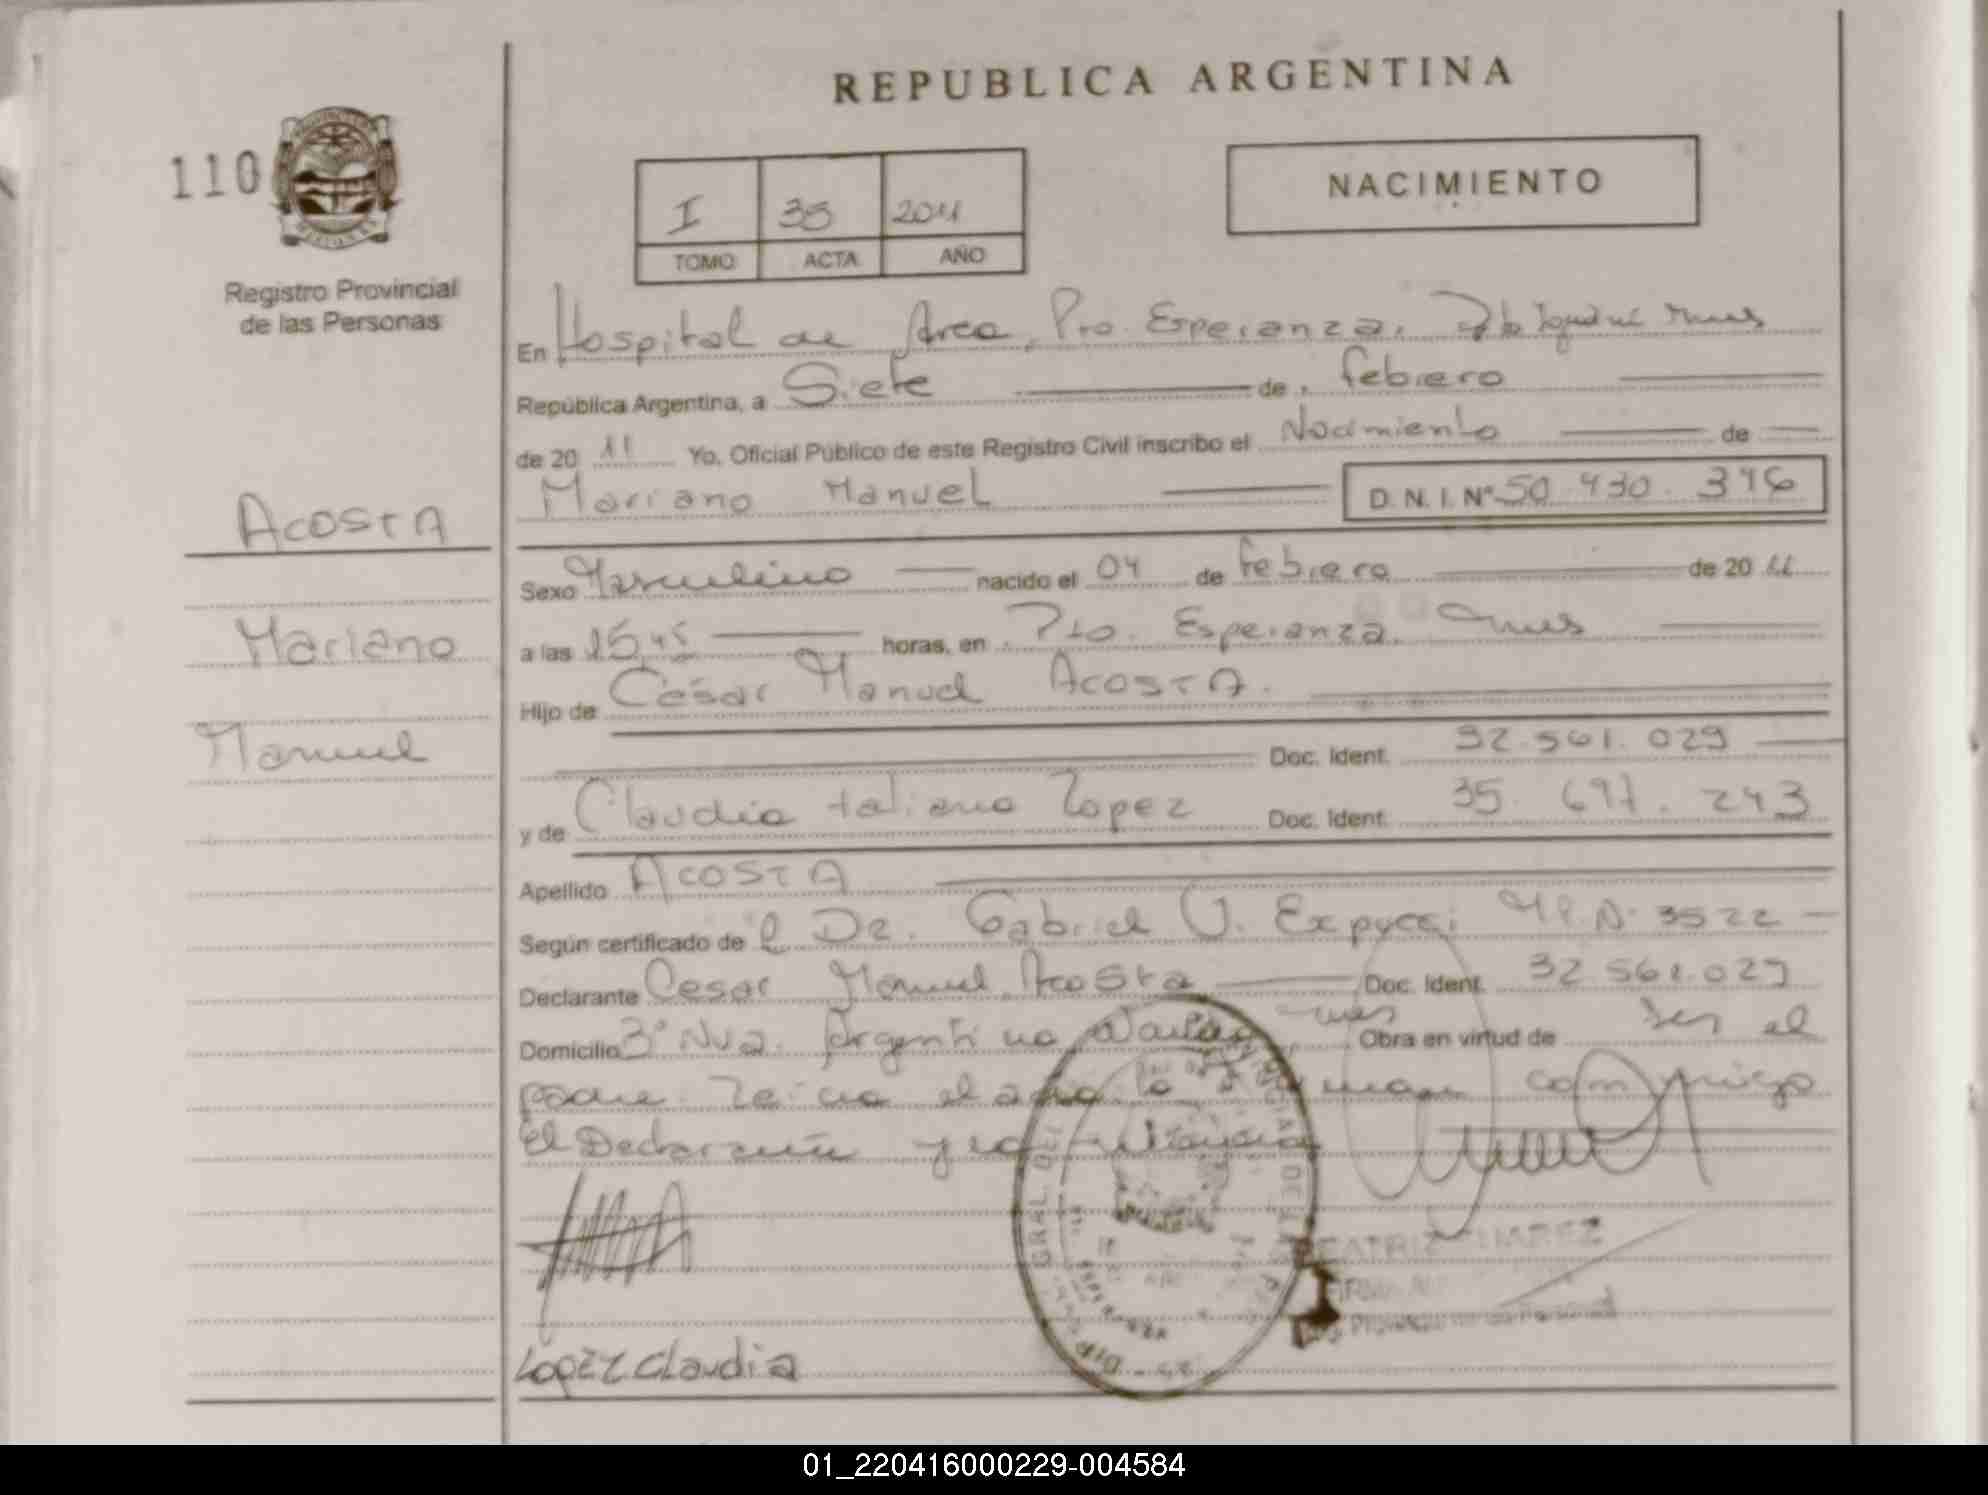 REPUBLICA ARGENTINA
110
NACIMIENTO
I 35 2011
TOMO ACTA AÑO
Registro Provincial
de las Personas
En Hospital de Area, Pto. Esperanza,
República Argentina, a Siete de febrero
de 20 11 Yo, Oficial Público de este Registro Civil inscribo el Nacimiento de
Mariano Manuel D. N. I. Nº 50 430.
ACOSTA
Mariano
Manuel
Sexo Masculino nacido el 04 de febrero de 20 11
a las 15,45 horas, en Pto. Esperanza.
Hijo de Cesar Manuel ACOSTA.
Doc. Ident. 32.561.029
y de Claudia tatiana Lopez Doc. Ident. 35. 697. 243
Apellido ACOSTA
Según certificado de el Dr. Gabriel 3522
Declarante Cesar Manuel Acosta Doc. Ident. 32.561.029
Domicilio Argentina Obra en virtud de ser el
padre. Leida el acta la firman conmigo
El Declarante y
BEATRIZ
Lopez Claudia
01_220416000229-004584